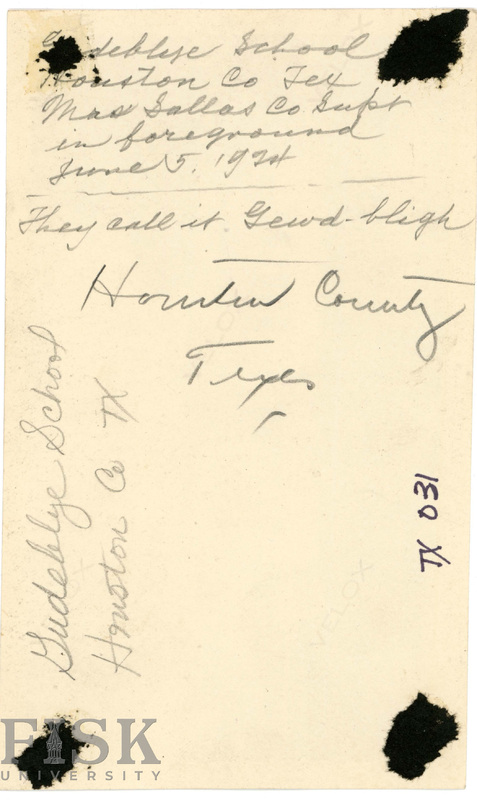 Gudeblye School
Houston Co Tex
Mao Sallas Co Supt
in foreground
June 5, 1924
They call it Gewd-bligh
Houston County
Texas
Gudeblye School
Houston Co TX
TX 031
VELOX
FISK
UNIVERSITY